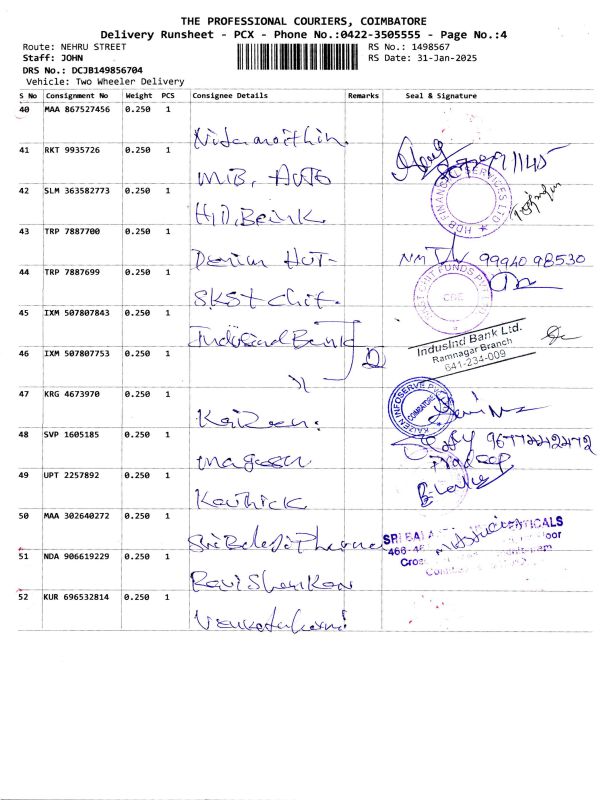 THE PROFESSIONAL COURIERS, COIMBATORE
Delivery Runsheet - PCX - Phone No.:0422-3505555 - Page No.:4
Route: NEHRU STREET
RS No.: 1498567
Staff: JOHN
RS Date: 31-Jan-2025
DRS No.: DCJB149856704
Vehicle: Two Wheeler Delivery
S No Consignment No Weight PCS Consignee Details Remarks Seal & Signature
40 MAA 867527456 0.250 1
41 RKT 9935726 0.250 1
MIB, AUTO
42 SLM 363582773 0.250 1
HDB FINANCIAL SERVICES LTD
43 TRP 7887700 0.250 1
99940 98530
44 TRP 7887699 0.250 1
SKST chit.
SKST CHIT FUNDS PVT LTD
CBE
45 IXM 507807843 0.250 1
IndusInd Bank
IndusInd Bank Ltd.
Ramnagar Branch
641-234-009
46 IXM 507807753 0.250 1
47 KRG 4673970 0.250 1
Kaizen.
KAIZEN INFOSERVE PVT
COIMBATORE
48 SVP 1605185 0.250 1
Pradeep
49 UPT 2257892 0.250 1
Karthick
50 MAA 302640272 0.250 1
Sri Balaji Pharma
SRI BALA
466-46
Cros
51 NDA 906619229 0.250 1
Ravi Shankar
52 KUR 696532814 0.250 1